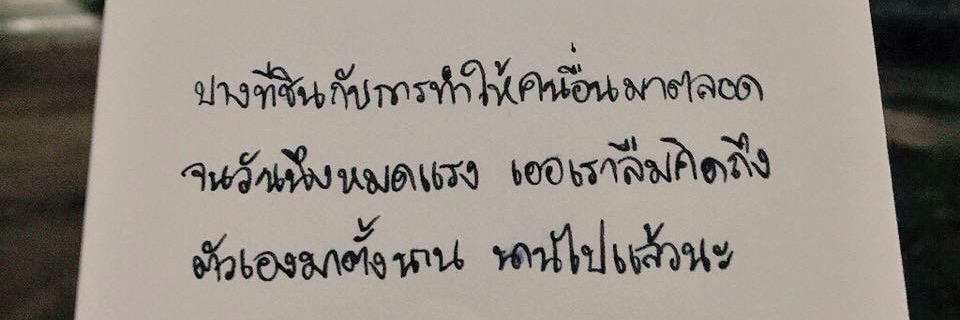 บางทีชินกับการทำให้คนอื่นมาตลอด
จนวันนึงหมดแรง เออเราลืมคิดถึง
ตัวเองมาตั้งนาน นานไปแล้วนะ